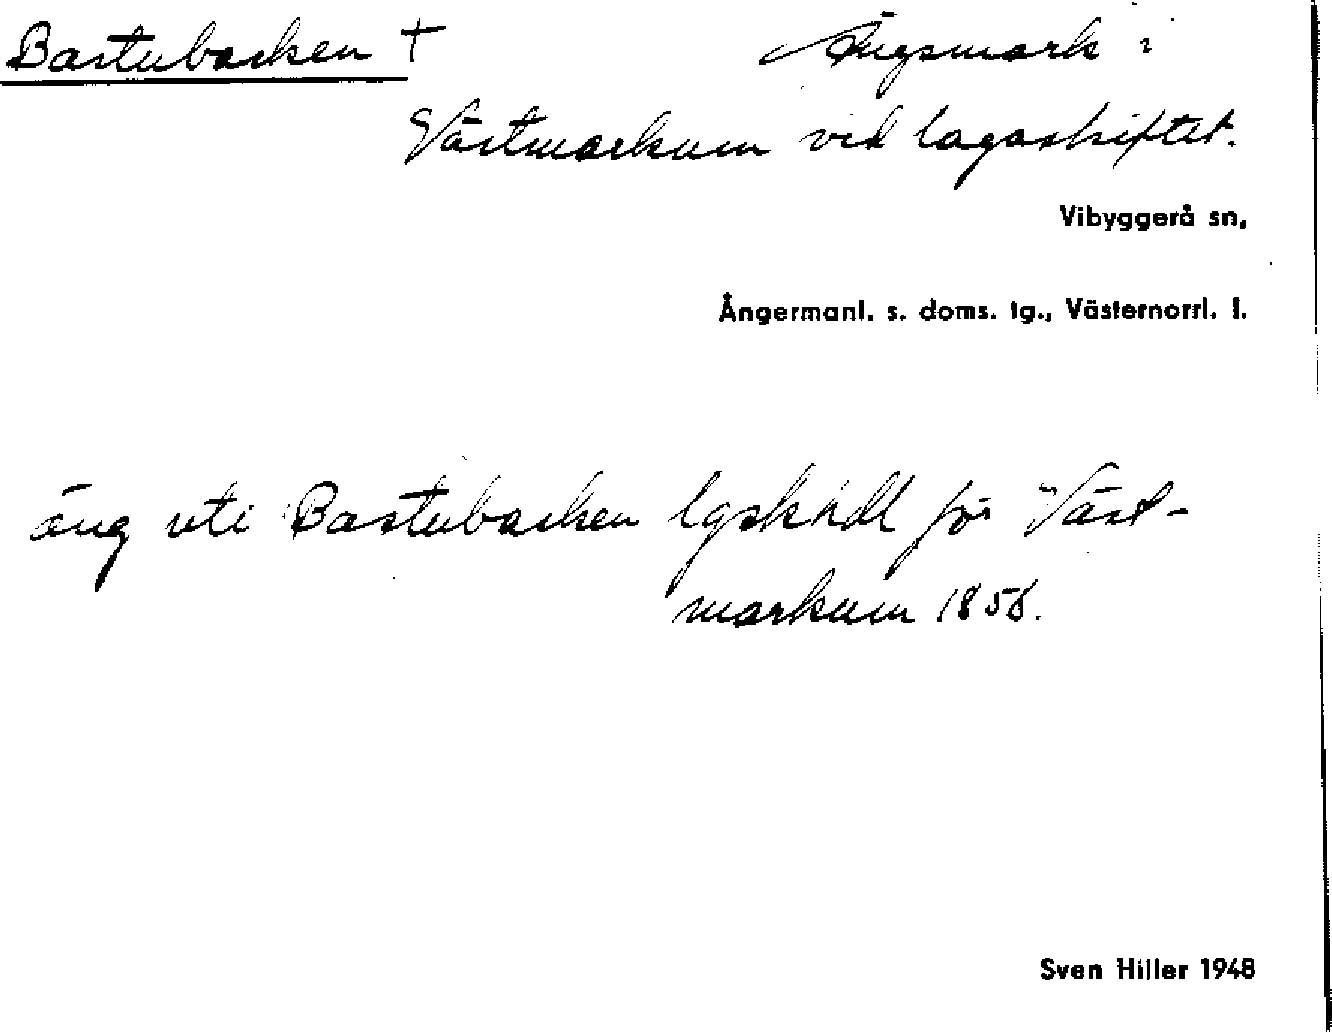 Bastubacken † Ängsmark i
Västmarkum vid lagaskiftet.
Vibyggerå sn,
Ångermanl. s. doms. tg., Västernorrl. l.
äng uti Bastubacken lgskhdl för Väst-
markum 1856.
Sven Hiller 1948